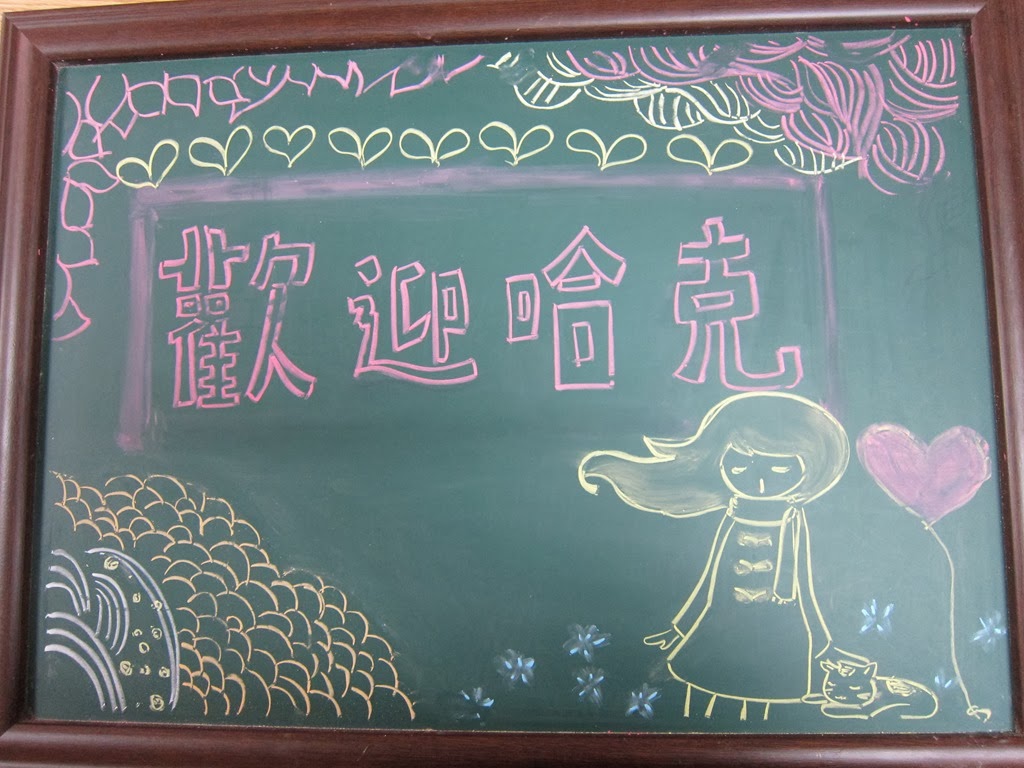 歡迎哈克